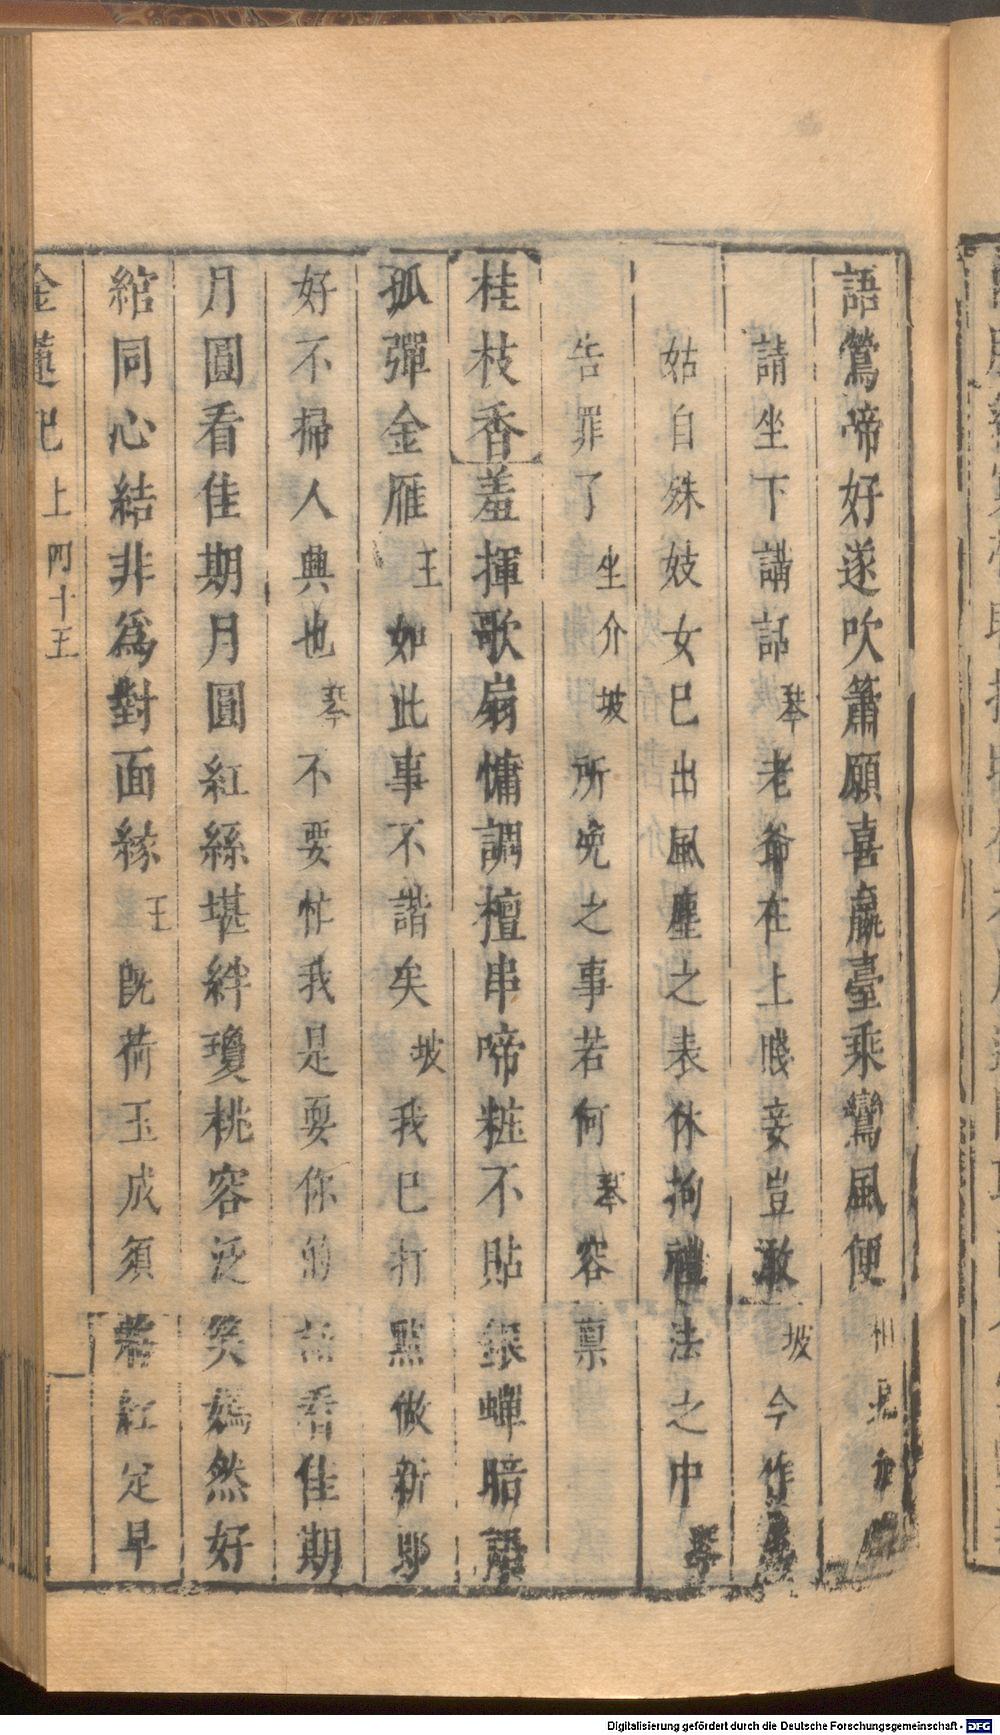 語鶯啼好遂吹簫願喜嬴臺乘鸞風便
請坐下講話琴老爺在上賤妾豈敢坡今作
姑自殊妓女已出風塵之表休拘禮法之中琴
告罪了坐介坡所晚之事若何琴容稟
桂枝香羞揮歌扇慵調檀串啼粧不貼銀蟬暗語
孤彈金雁王如此事不諧矣坡我已打點做新郎
好不掃人興也琴不要忙我是耍你的看佳期
月圓看佳期月圓紅絲堪絆瓊桃容泛笑嫣然好
綰同心結非為對面緣王既荷玉成須紅定早
金蓮記上四十王
Digitalisierung gefördert durch die Deutsche Forschungsgemeinschaft - DFG